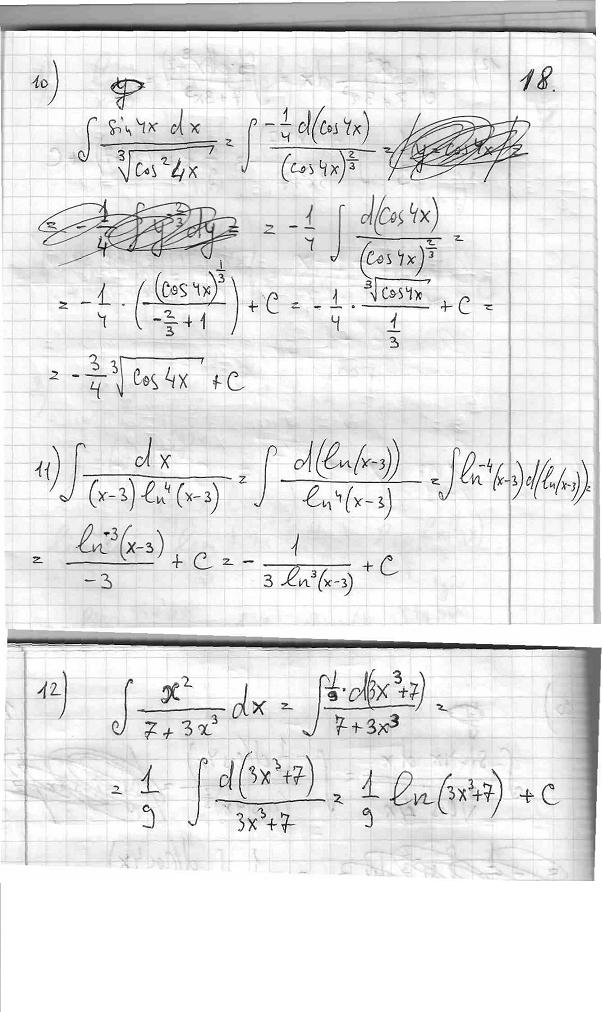 18.
10)
∫ sin4x dx / ∛(cos²4x) = ∫ -1/4 d(cos4x) / (cos4x)^(2/3) =
= -1/4 ∫ d(cos4x) / (cos4x)^(2/3) =
= -1/4 · ((cos4x)^(1/3) / (-2/3 + 1)) + C = -1/4 · ∛(cos4x) / (1/3) + C =
= -3/4 ∛(cos4x) + C
11) ∫ dx / ((x-3) ln⁴(x-3)) = ∫ d(ln(x-3)) / ln⁴(x-3) = ∫ ln⁻⁴(x-3) d(ln(x-3)) =
= ln⁻³(x-3) / -3 + C = - 1 / (3 ln³(x-3)) + C
12) ∫ x² / (7+3x³) dx = ∫ 1/9 · d(3x³+7) / (7+3x³) =
= 1/9 ∫ d(3x³+7) / (3x³+7) = 1/9 ln(3x³+7) + C